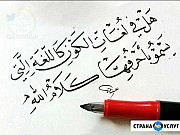 هل في لغات الكون كاللغة التي
يسمو بأحرفها كلام الله
СТРАНА
УСЛУГ